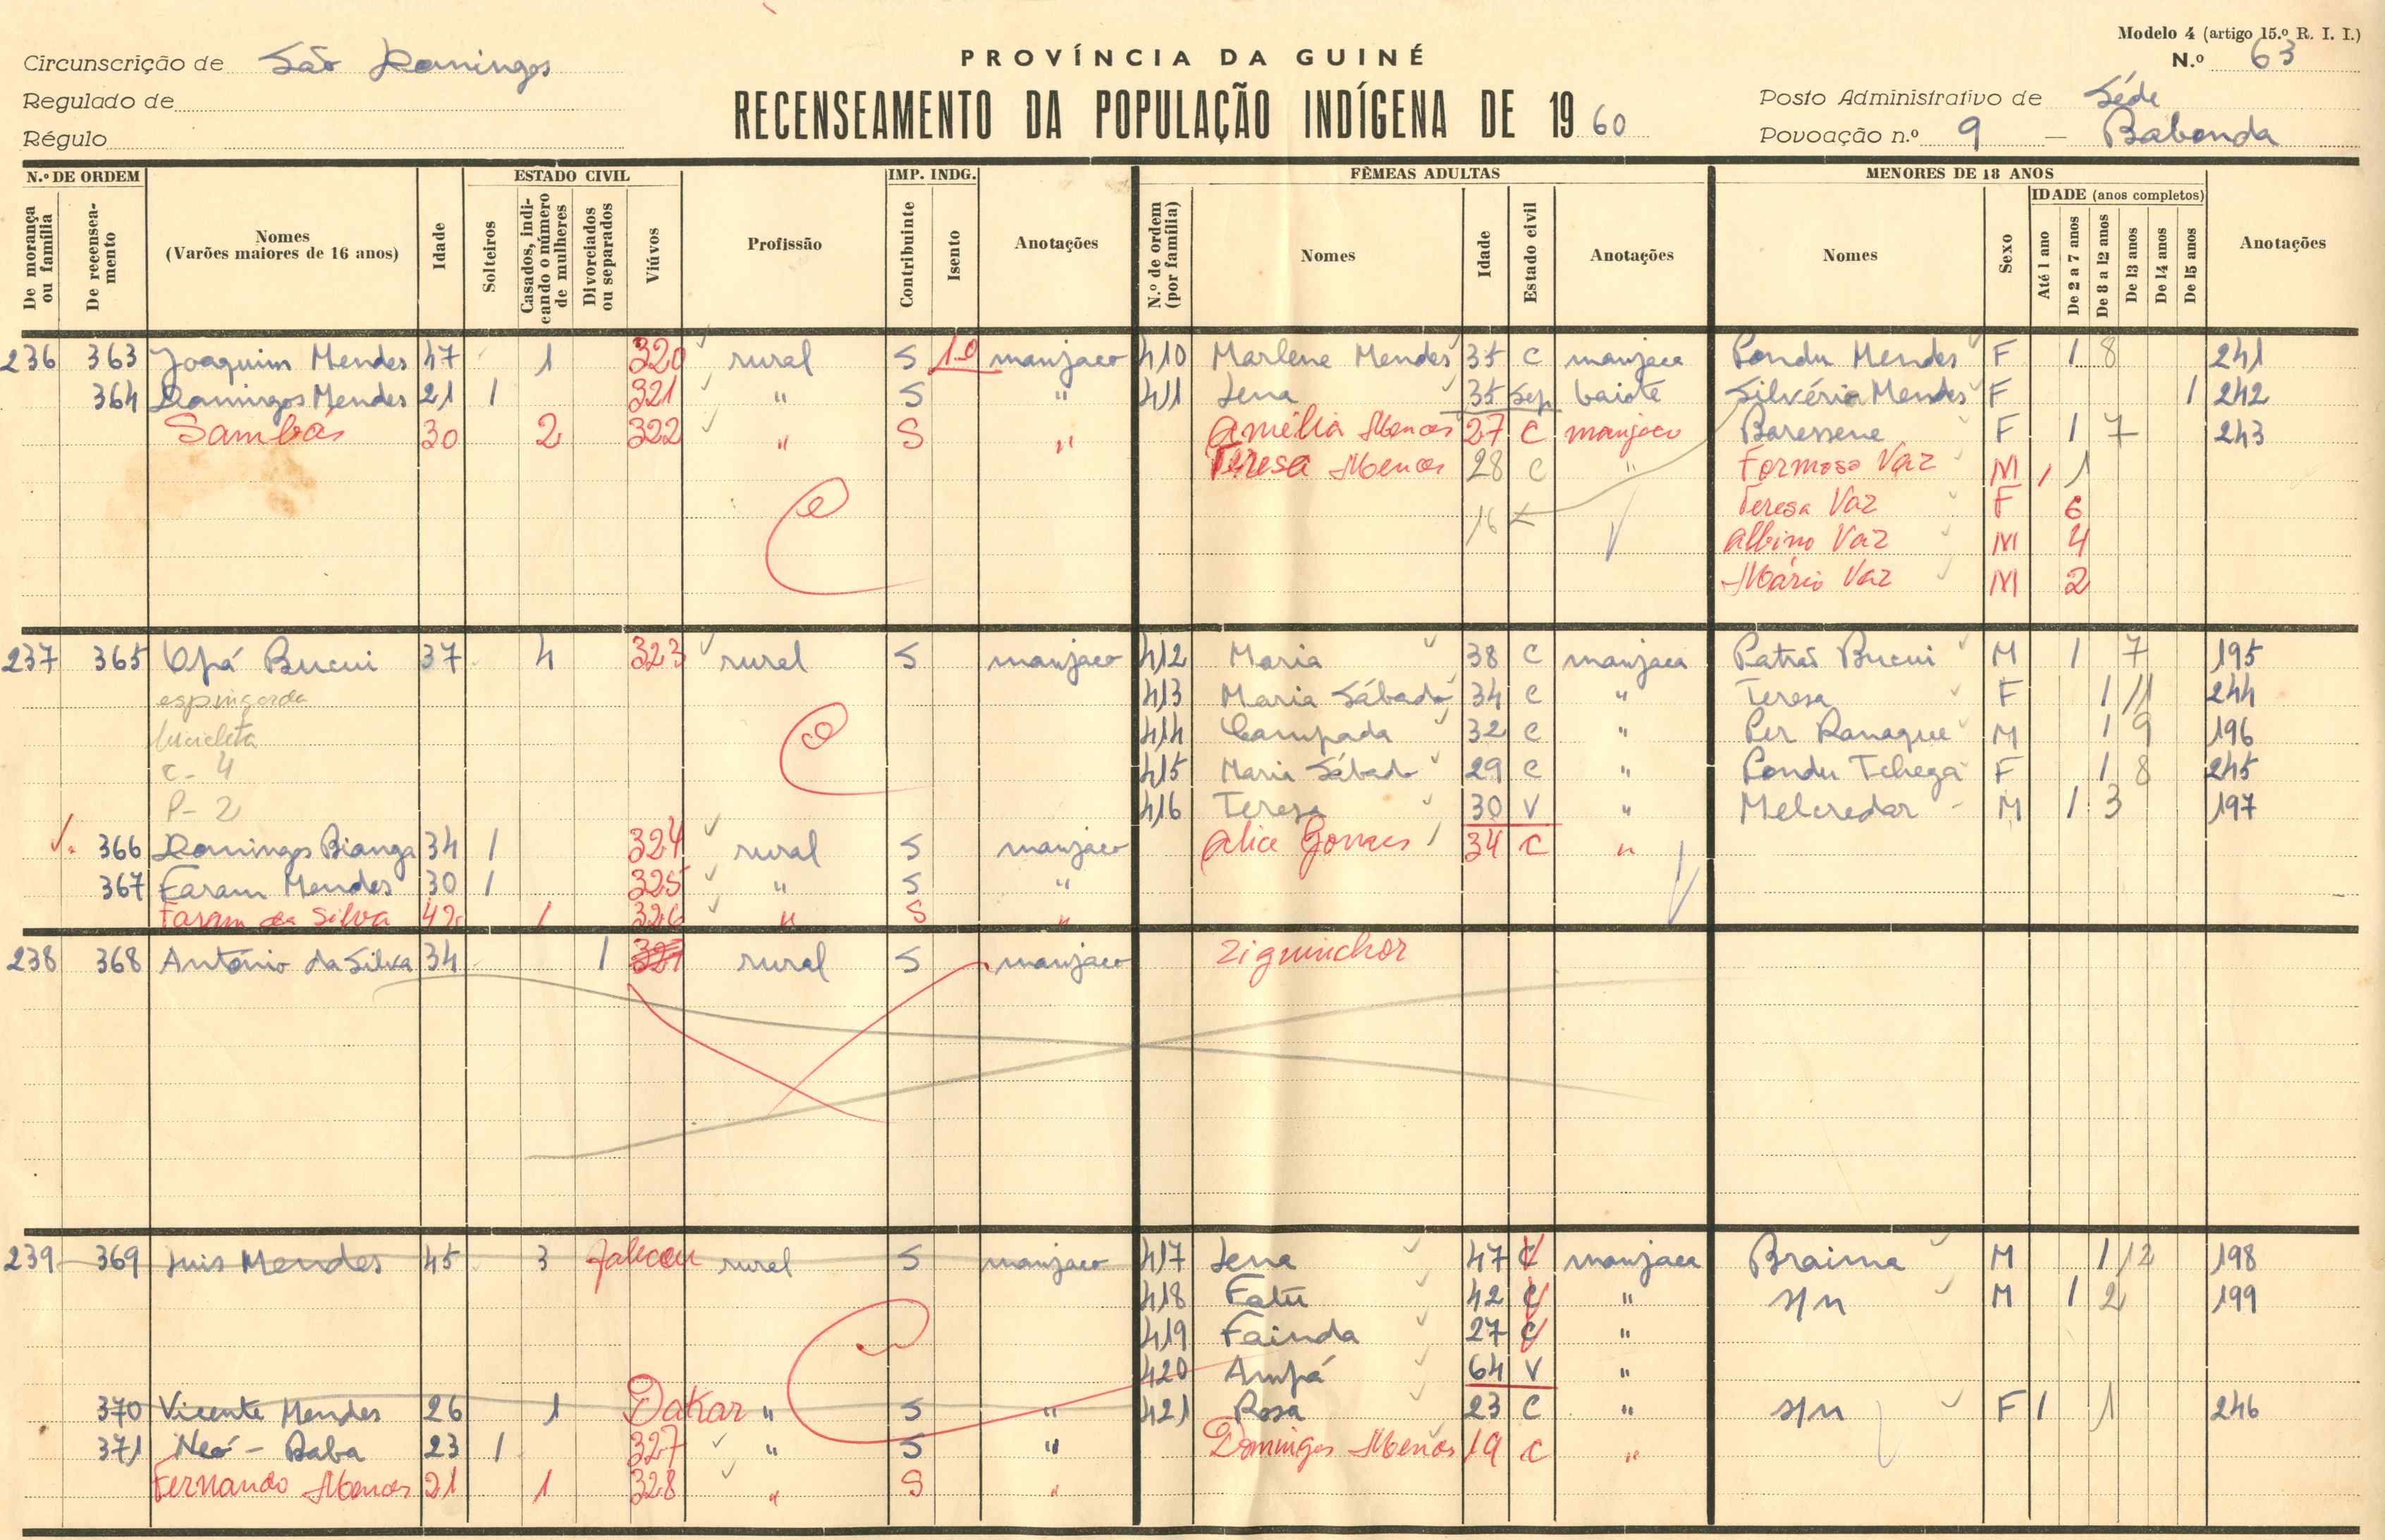 Modelo 4 (artigo 15.º R. I. I.)
Circunscrição de São Domingos
PROVÍNCIA DA GUINÉ
N.º 63
Regulado de
RECENSEAMENTO DA POPULAÇÃO INDÍGENA DE 1960
Posto Administrativo de Séde
Régulo
Povoação n.º 9 — Babonda
N.º DE ORDEM ESTADO CIVIL IMP. INDG. FÊMEAS ADULTAS MENORES DE 18 ANOS
De morança ou família De recenseamento Nomes (Varões maiores de 16 anos) Idade Solteiros Casados, indicando o número de mulheres Divorciados ou separados Viúvos Profissão Contribuinte Isento Anotações N.º de ordem (por família) Nomes Idade Estado civil Anotações Nomes Sexo IDADE (anos completos) Até 1 ano De 2 a 7 anos De 8 a 12 anos De 13 anos De 14 anos De 15 anos Anotações
236 363 Joaquim Mendes 47 1 320 rural S 10 manjaco 410 Marlene Mendes 35 C manjaca Pondu Mendes F 1 8 241
364 Domingos Mendes 21 1 321 " S " 411 Lena 35 Sep. baiote Silvéria Mendes F 1 242
Sambás 30 2 322 " S " Amélia Mendes 27 C manjaco Baressene F 1 7 243
Teresa Mendes 28 C " Formoso Vaz M 1 1
16 Teresa Vaz F 6
Albino Vaz M 4
Mário Vaz M 2
237 365 Opá Bucui 37 4 323 rural S manjaco 412 Maria 38 C manjaca Patrás Bucui M 1 7 195
espingarda 413 Maria Sábado 34 C " Teresa F 1 11 244
bicicleta 414 Campada 32 C " Per Ranaque M 1 9 196
c - 4 415 Maria Sábado 29 C " Pondu Tchega F 1 8 245
P - 2 416 Teresa 30 V " Melcredar M 1 3 197
366 Domingos Bianga 34 1 324 rural S manjaco Alice Gomes 34 C "
367 Faram Mendes 30 1 325 " S "
Faram da Silva 42 1 326 " S "
238 368 António da Silva 34 1 327 rural S manjaco Ziguinchor
239 369 Luis Mendes 45 3 faleceu rural S manjaco 417 Lena 47 C manjaca Braima M 1 12 198
418 Fatu 42 C " s/n M 1 2 199
419 Fainda 27 C "
420 Ampá 64 V "
370 Vicente Mendes 26 1 Dakar " S " 421 Rosa 23 C " s/n F 1 1 246
371 Neó - Baba 23 1 327 " S " Domingas Mendes 19 C "
Fernando Mendes 21 1 328 " S "